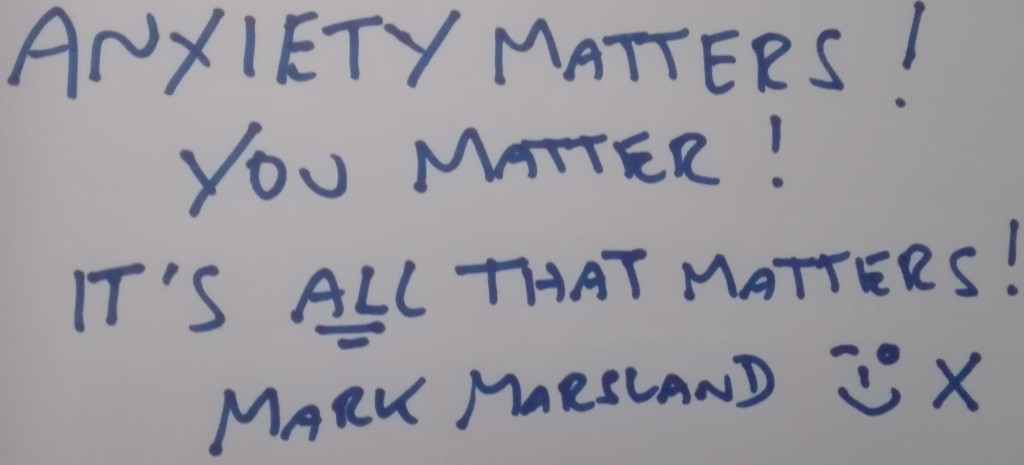 ANXIETY MATTERS!
YOU MATTER!
IT'S ALL THAT MATTERS!
MARK MARSLAND X